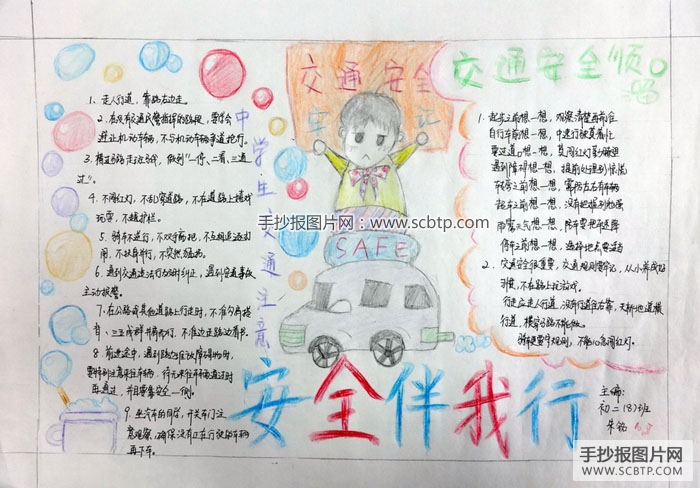 交通安全
安 平
交通安全顺口
中学生交通注意
1、走人行道，靠路右边走。
2、在没有交通民警指挥的路段，要学会
避让机动车辆，不与机动车辆争道抢行。
3、横过马路走斑马线，做到“一停、二看、三通
过”。
4、不闯红灯，不乱穿道路，不在道路上嬉戏
玩耍，不越护栏。
5、骑车不逆行，不双手离把，不互相追逐打
闹，不攀扶并行，不突然猛拐。
6、遇到交通违法行为及时纠正，遇到交通事故
主动报警。
7、在公路或其他道路上行走时，不准勾肩搭
背、三五成群并肩而行，不准边走路边看书。
8、前进途中，遇到路边停放障碍物时，
要特别注意来往车辆，待无来往车辆通过时
再通过，并且要靠安全一侧。
9、坐汽车的同学，开关车门注
意观察，确保没有正在行驶的车辆
再下车。
SAFE
1、起步之前想一想，观察清楚再前往
自行车前想一想，中速行驶莫着忙
要过道口想一想，莫闯红灯勤瞭望
遇到障碍想一想，提前处理别惊慌
转弯之前想一想，需防左右有车辆
超车之前想一想，没有把握别勉强
雨雾天气想一想，防车要把车速降
停车之前想一想，选择地点要适当
2、交通安全很重要，交通规则要牢记，从小养成好
习惯，不在路上玩游戏。
行走应走人行道，没有行道往右靠，天桥地道横
行道，横穿马路不能做。
骑车更要守规则，不能心急闯红灯。
安全伴我行
主编：
初二(8)班
朱铭
手抄报图片网：www.scbtp.com
手抄报图片网
WWW.SCBTP.COM